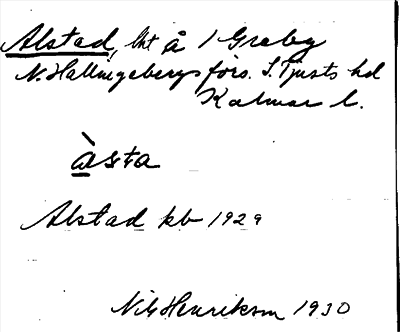 Alstad, lht å 1 Greby
N. Hallingebergs förs. S. Tjusts hd
Kalmar l.
àsta
Alstad kb 1929
Nils Henrikson 1930